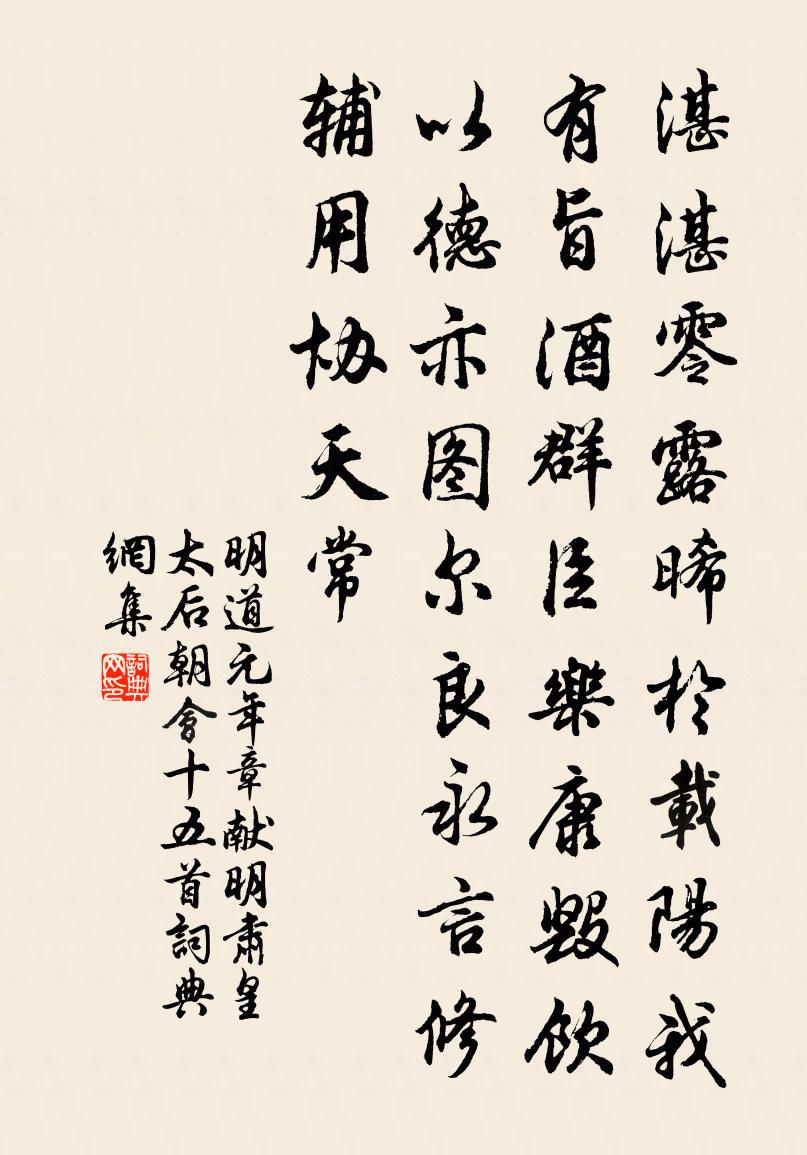 湛湛零露晞於載陽我
有旨酒群臣樂康毀飲
以德亦图尔良永言修
辅用协天常
明道元年章献明肃皇
太后朝會十五首詞典
網集
詞典网印